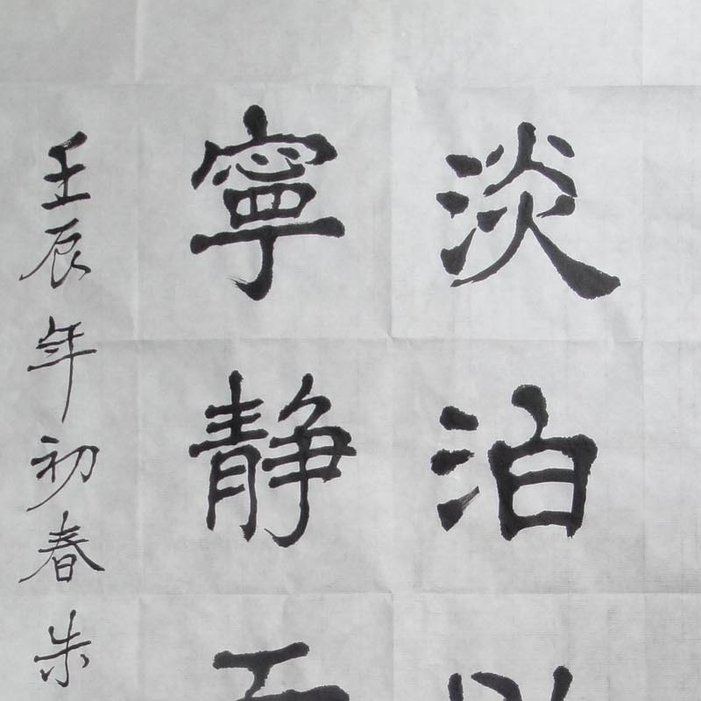 淡泊以
寧静
壬辰年初春朱